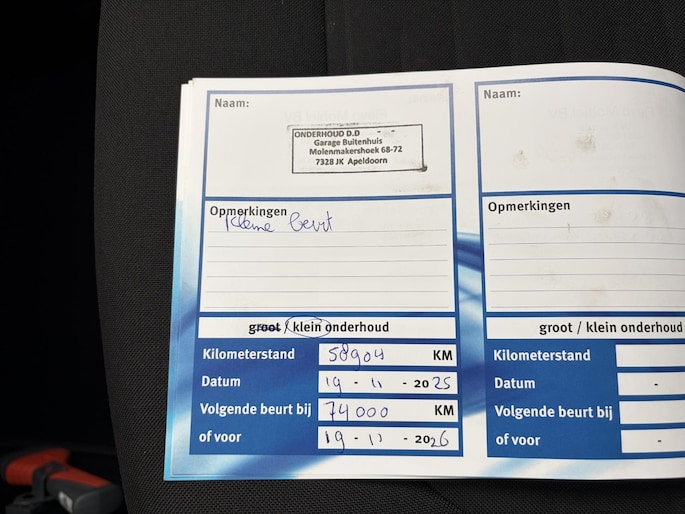 Naam:
ONDERHOUD D.D - -
Garage Buitenhuis
Molenmakershoek 68-72
7328 JK Apeldoorn
Opmerkingen
Kleine beurt
groot / klein onderhoud
Kilometerstand 58904 KM
Datum 19 - 11 - 2025
Volgende beurt bij 74000 KM
of voor 19 - 11 - 2026
Naam:
Opmerkingen
groot / klein onderhoud
Kilometerstand
Datum -
Volgende beurt bij
of voor -